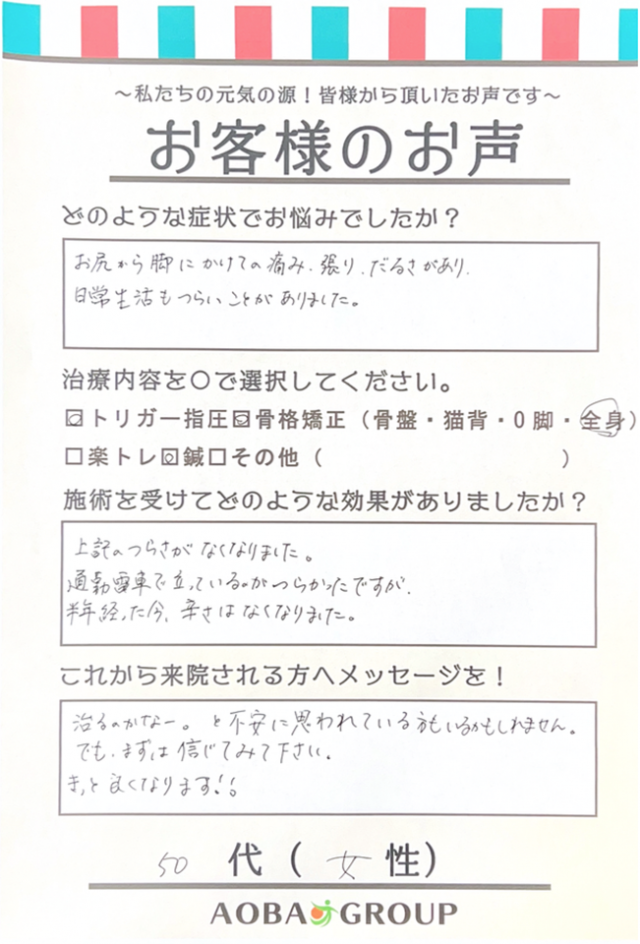 ～私たちの元気の源！皆様から頂いたお声です～
お客様のお声
どのような症状でお悩みでしたか？
お尻から脚にかけての痛み、張り、だるさがあり、
日常生活もつらいことがありました。
治療内容を〇で選択してください。
☑トリガー指圧☑骨格矯正（骨盤・猫背・O脚・全身）
□楽トレ☑鍼□その他（　　　　　　　　　　）
施術を受けてどのような効果がありましたか？
上記のつらさがなくなりました。
通勤電車で立っているのがつらかったですが、
半年経った今、辛さはなくなりました。
これから来院される方へメッセージを！
治るのかなー。と不安に思われている方もいるかもしれません。
でも、まずは信じてみて下さい。
きっと良くなります！！
50代（女性）
AOBA GROUP